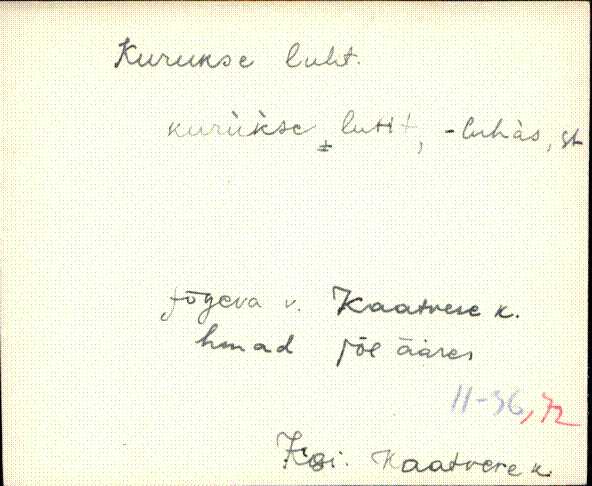 Kurukse luht.
kurukse luht, -luhas, st
Jõgeva v. Kaatvere k.
hmad jõe ääres
11-36, 72
Kaatvere k